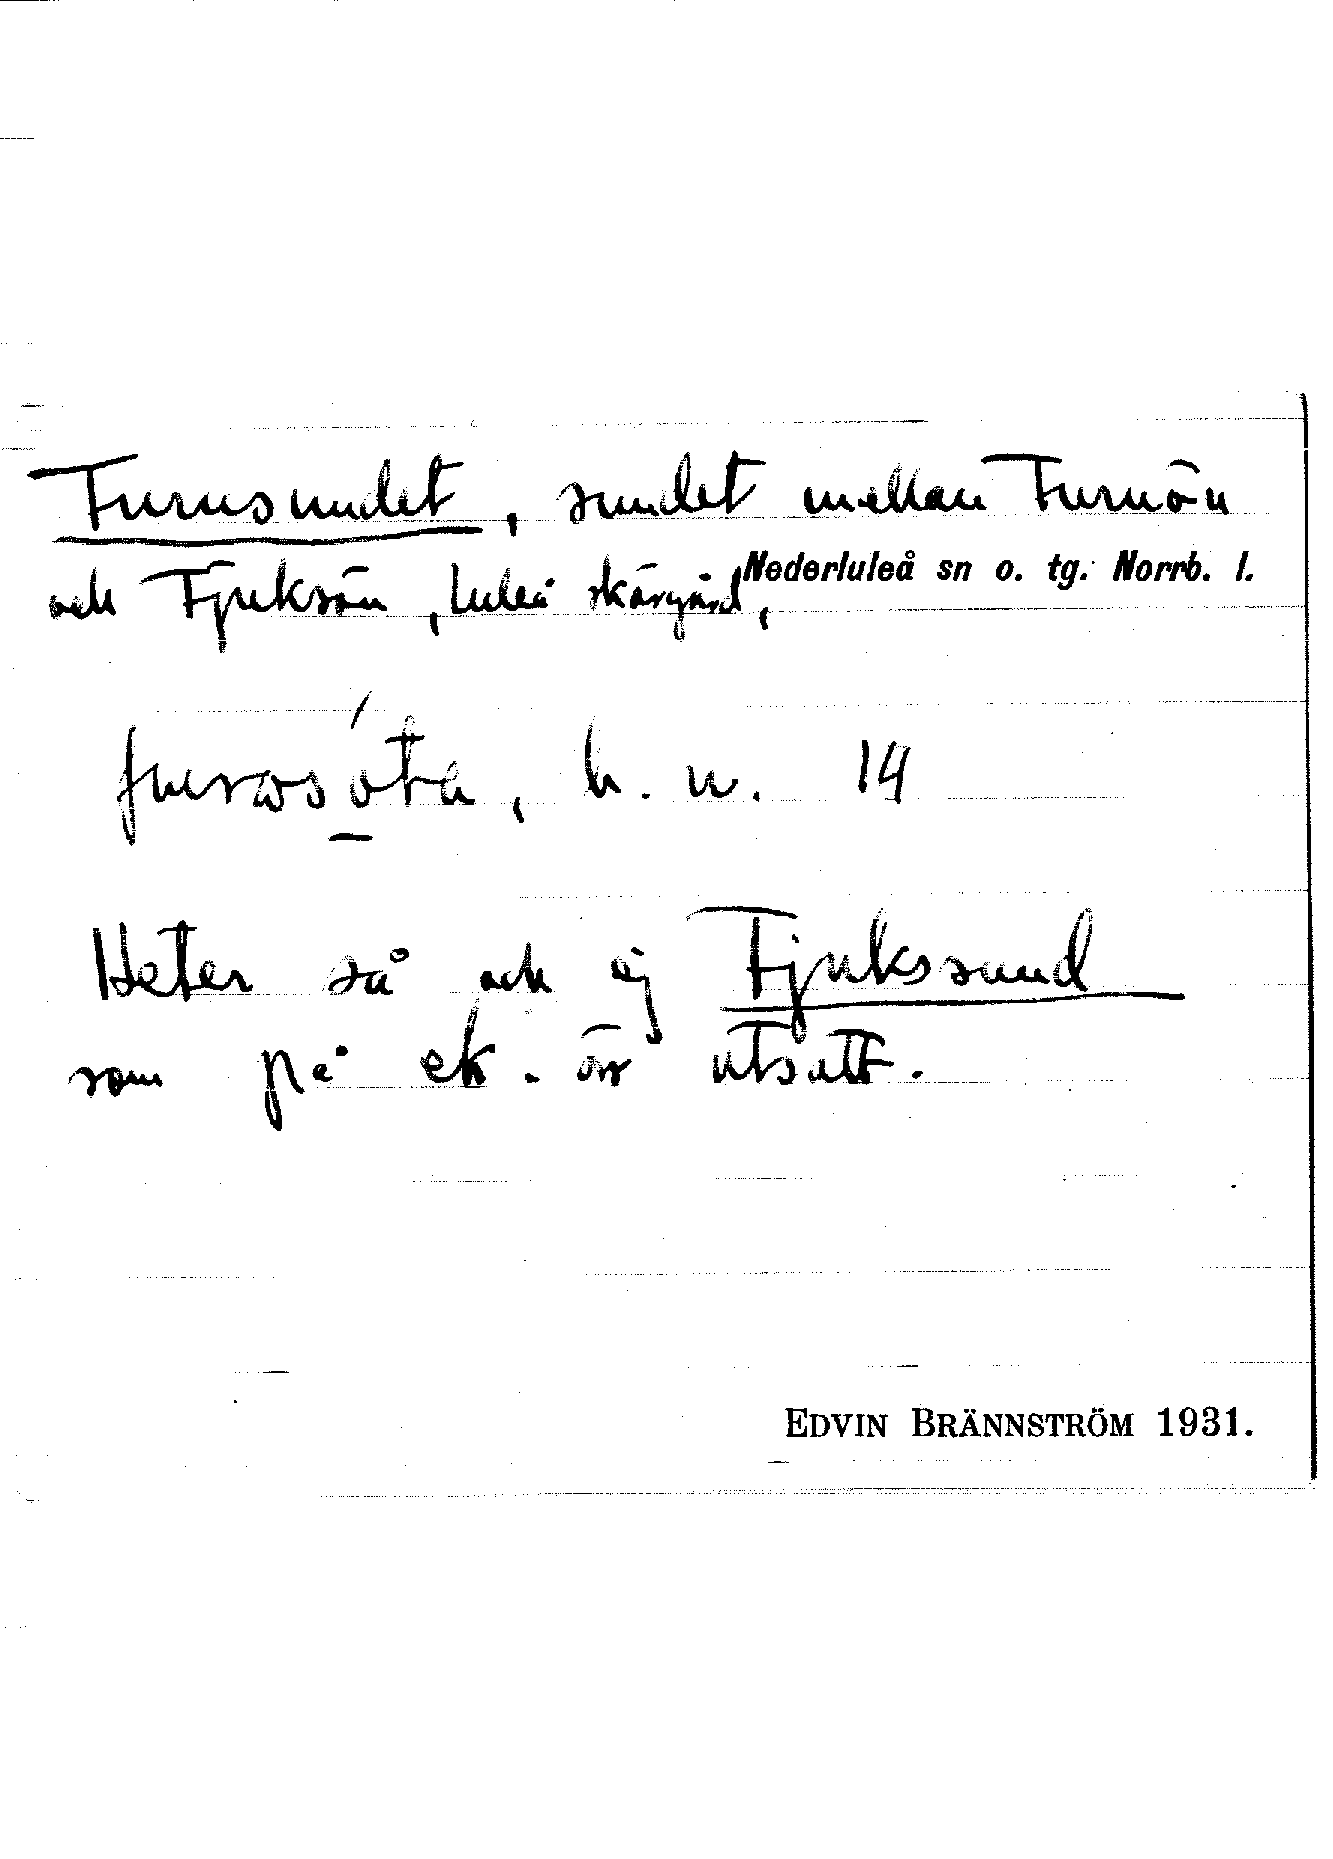 Furusundet, sundet mellan Furuön
och Fjuksön, Luleå skärgård, Nederluleå sn o. tg. Norrb. l.
h. n. 14
Heter så och ej Fjukssund
som på ek. är utsatt.
EDVIN BRÄNNSTRÖM 1931.